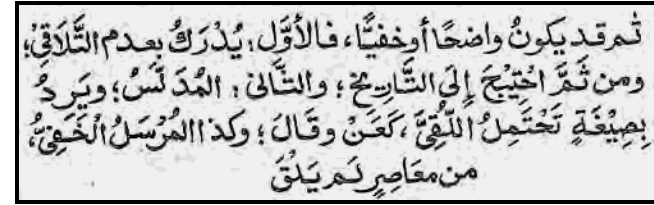 ثُمَّ قد يكونُ واضحًا أوخفيًّا، فالأوَّل: يُدْرَكُ بعدم التَّلَاقِيْ؛
ومن ثَمَّ احْتِيْجَ إلَى التَّارِيخ؛ والثَّاني: المُدَلَّسُ؛ ويَرِدُ
بِصِيْغَةٍ تَحْتَمِلُ اللُّقِيَّ، كَعَنْ وقَالَ؛ وكذا المُرْسَلُ الْخَفِيُّ،
من معَاصِرٍ لَم يَلْقَ